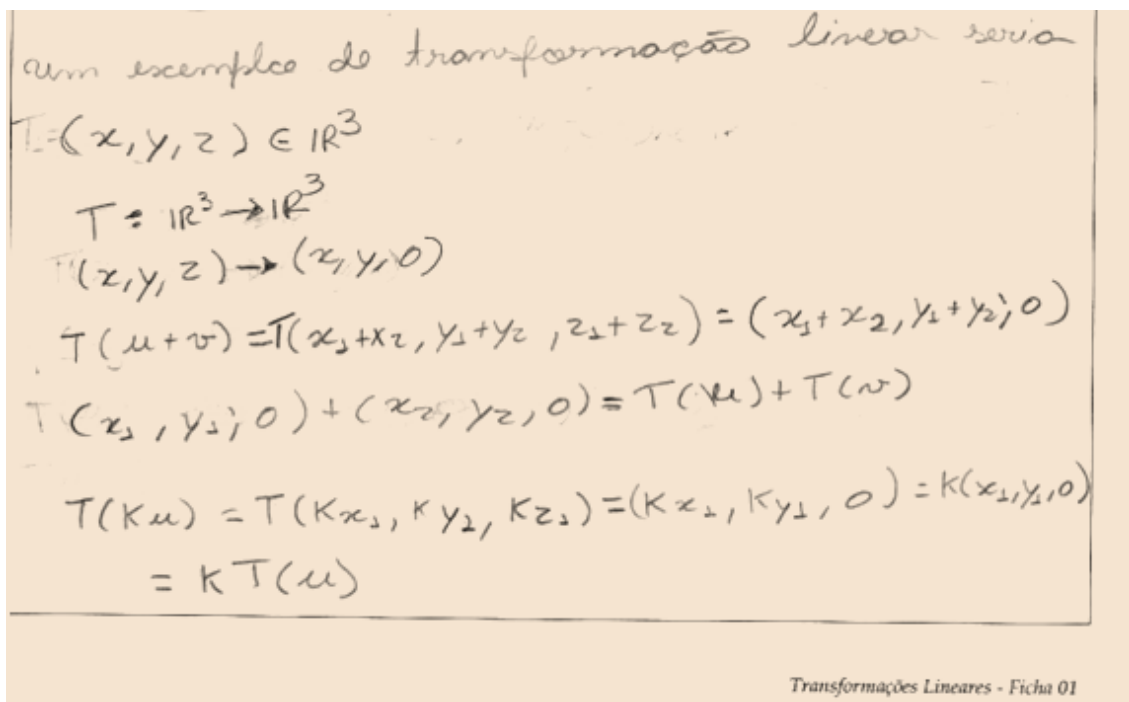 um exemplo de transformação linear seria
T=(x,y,z) ∈ IR³
T: IR³→IR³
T(x,y,z)→(x,y,0)
T(u+v)=T(x₁+x₂,y₁+y₂,z₁+z₂)=(x₁+x₂,y₁+y₂,0)
T(x₁,y₁,0)+(x₂,y₂,0)=T(u)+T(v)
T(Ku)=T(Kx₁,Ky₁,Kz₁)=(Kx₁,Ky₁,0)=K(x₁,y₁,0)
=KT(u)
Transformações Lineares - Ficha 01